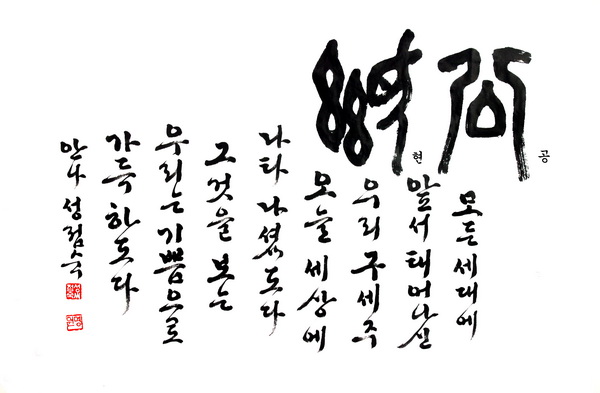 公
공
현
모든 세대에
앞서 태어나신
우리 구세주
오늘 세상에
나타나셨도다
그것을 보는
우리는 기쁨으로
가득 하도다
안나